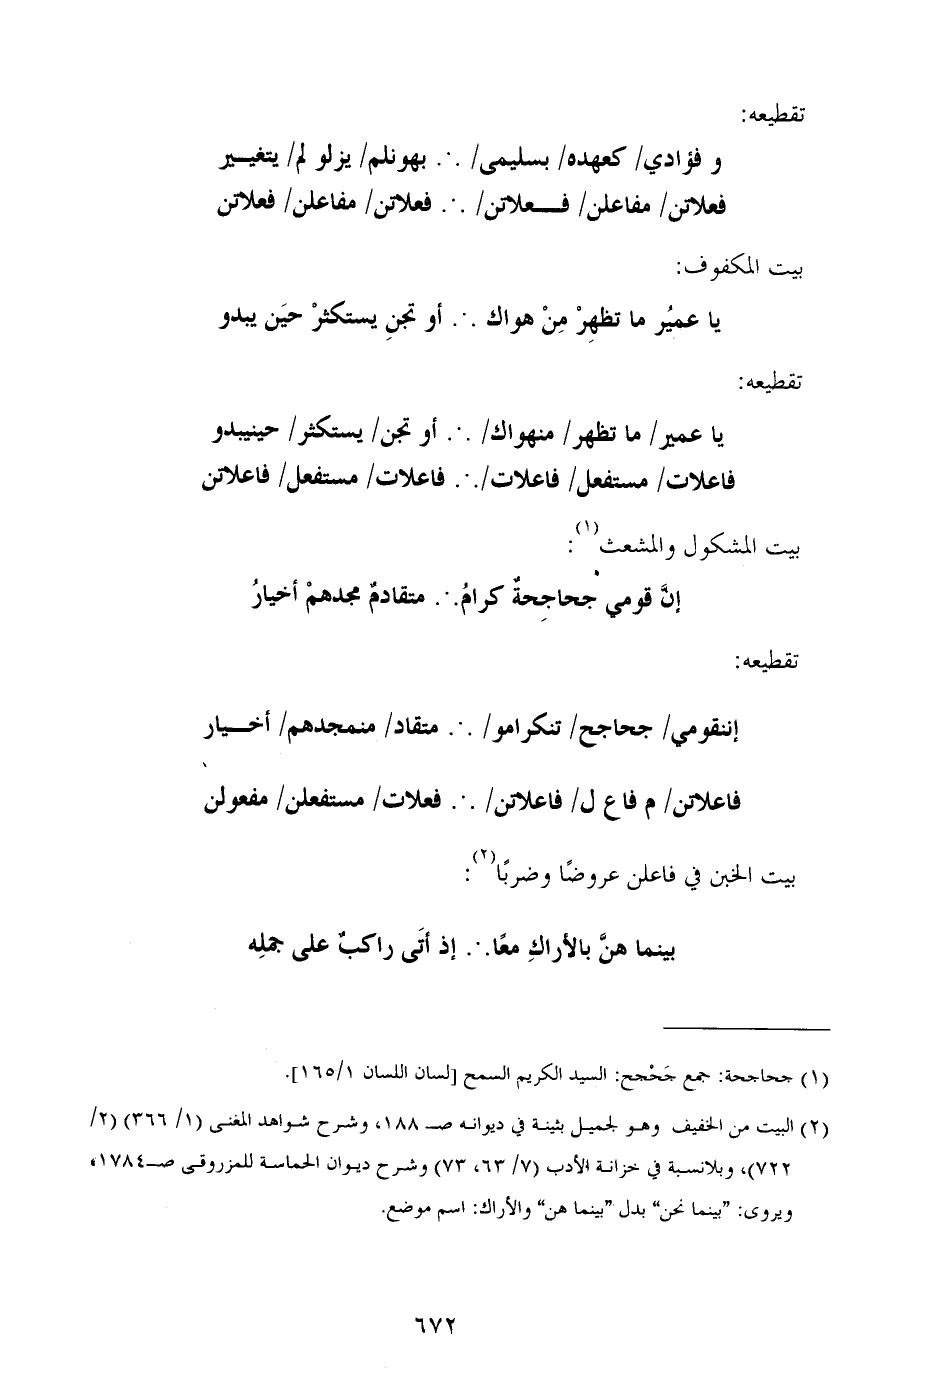 تقطيعه:
و فؤادي/ كعهده/ بسليمى/ ∴ بهونلم/ يزلو لم/ يتغيـــير
فعلاتن/ مفاعلن/ فـــعلاتن/ ∴ فعلاتن/ مفاعلن/ فعلاتن
بيت المكفوف:
يا عميُر ما تظهِرْ مِنْ هواك ∴ أو تجنِ يستكثرْ حيَن يبدو
تقطيعه:
يا عمير/ ما تظهر/ منهواك/ ∴ أو تجن/ يستكثر/ حينيبدو
فاعلات/ مستفعل/ فاعلات/∴ فاعلات/ مستفعل/ فاعلاتن
بيت المشكول والمشعث(١):
إنَّ قومي جحاجِحةٌ كرامُ∴ متقادمٌ مجدهمْ أخيارُ
تقطيعه:
إننقومي/ جحاجح/ تنكرامو/ ∴ متقاد/ منمجدهم/ أخـــيار
فاعلاتن/ م فا ع ل/ فاعلاتن/ ∴ فعلات/ مستفعلن/ مفعولن
بيت الخبن في فاعلن عروضًا وضربًا(٢):
بينما هنَّ بالأراكِ معًا∴ إذ أتَى راكبٌ على جملِه
(١) جحاجحة: جمع جَحْجح: السيد الكريم السمح [لسان اللسان ١٦٥/١].
(٢) البيت من الخفيف وهو لجميل بثينة في ديوانه صـ ١٨٨، وشرح شواهد المغنى (١/ ٣٦٦) (٢/
٧٢٢)، وبلانسبة في خزانة الأدب (٧/ ٦٣، ٧٣) وشرح ديوان الحماسة للمزروقى صـ١٧٨٤،
ويروى: "بينما نحن" بدل "بينما هن" والأراك: اسم موضع.
٦٧٢